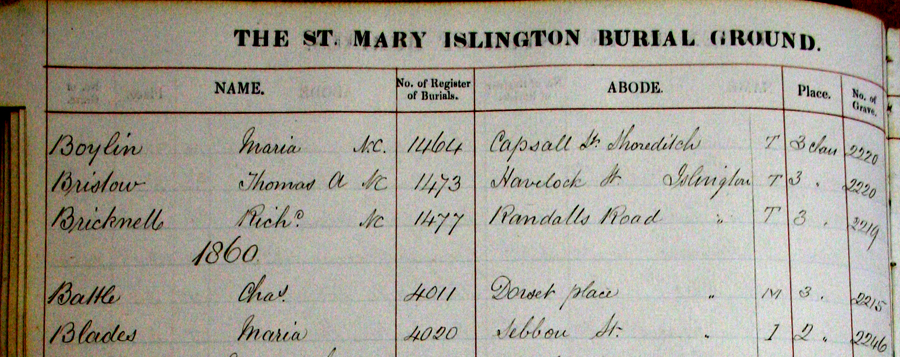 THE ST. MARY ISLINGTON BURIAL GROUND.
NAME. No. of Register of Burials. ABODE. Place. No. of Grave.
Boylin Maria N.C. 1464 Capsall St. Shoreditch T 3 Clas 2220
Bristow Thomas A NC 1473 Havelock St. Islington T 3 " 2220
Bricknell Richd. NC 1477 Randalls Road " T 3 " 2219
1860.
Battle Chas. 4011 Dorset place " M 3 " 2215
Blades Maria 4020 Sebbon St. " I 2 " 2246